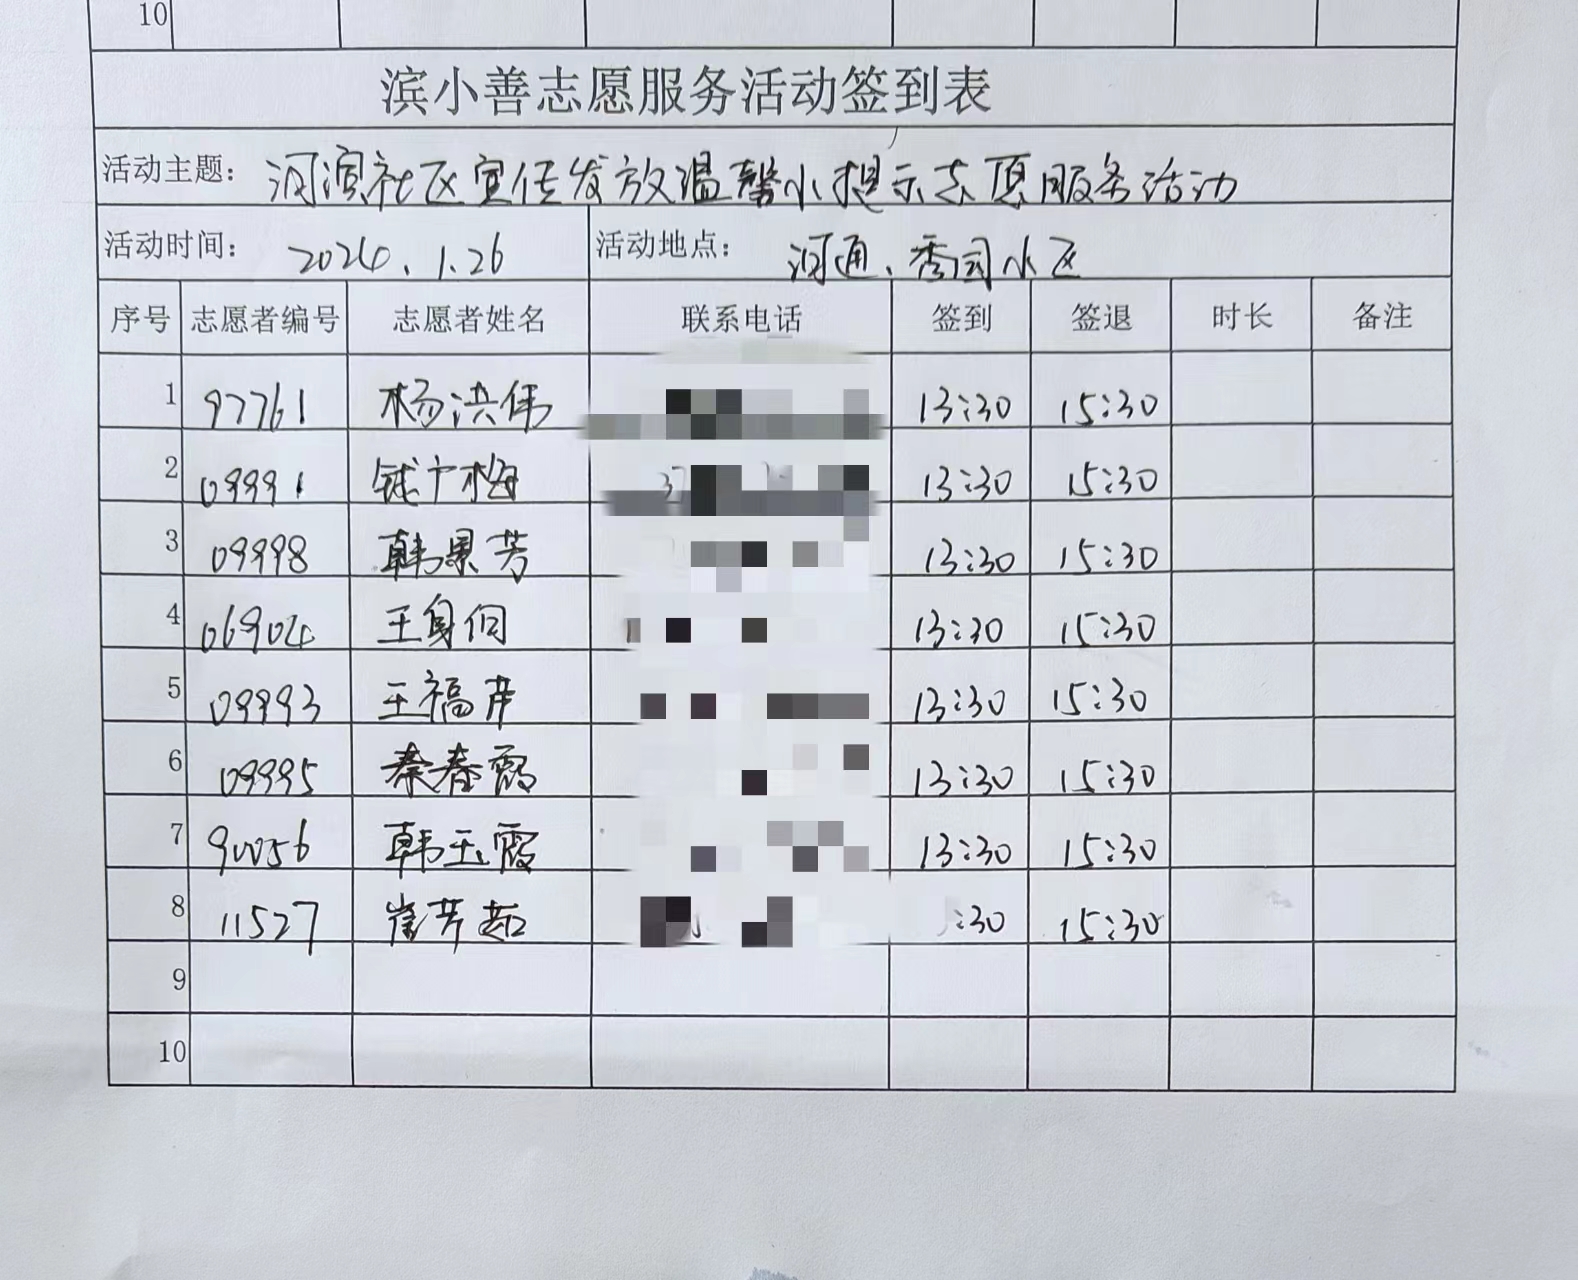 10
滨小善志愿服务活动签到表
活动主题: 河滨社区宣传发放温馨小提示志愿服务活动
活动时间: 2024.1.26 活动地点: 河通、秀园小区
序号 志愿者编号 志愿者姓名 联系电话 签到 签退 时长 备注
1 97761 杨洪伟 13:30 15:30
2 09991 钱广梅 37 13:30 15:30
3 09998 韩景芳 13:30 15:30
4 06904 王身 13:30 15:30
5 09993 王福芹 13:30 15:30
6 09995 秦春霞 13:30 15:30
7 90056 韩玉霞 13:30 15:30
8 11527 崔芹茹 :30 15:30
9
10